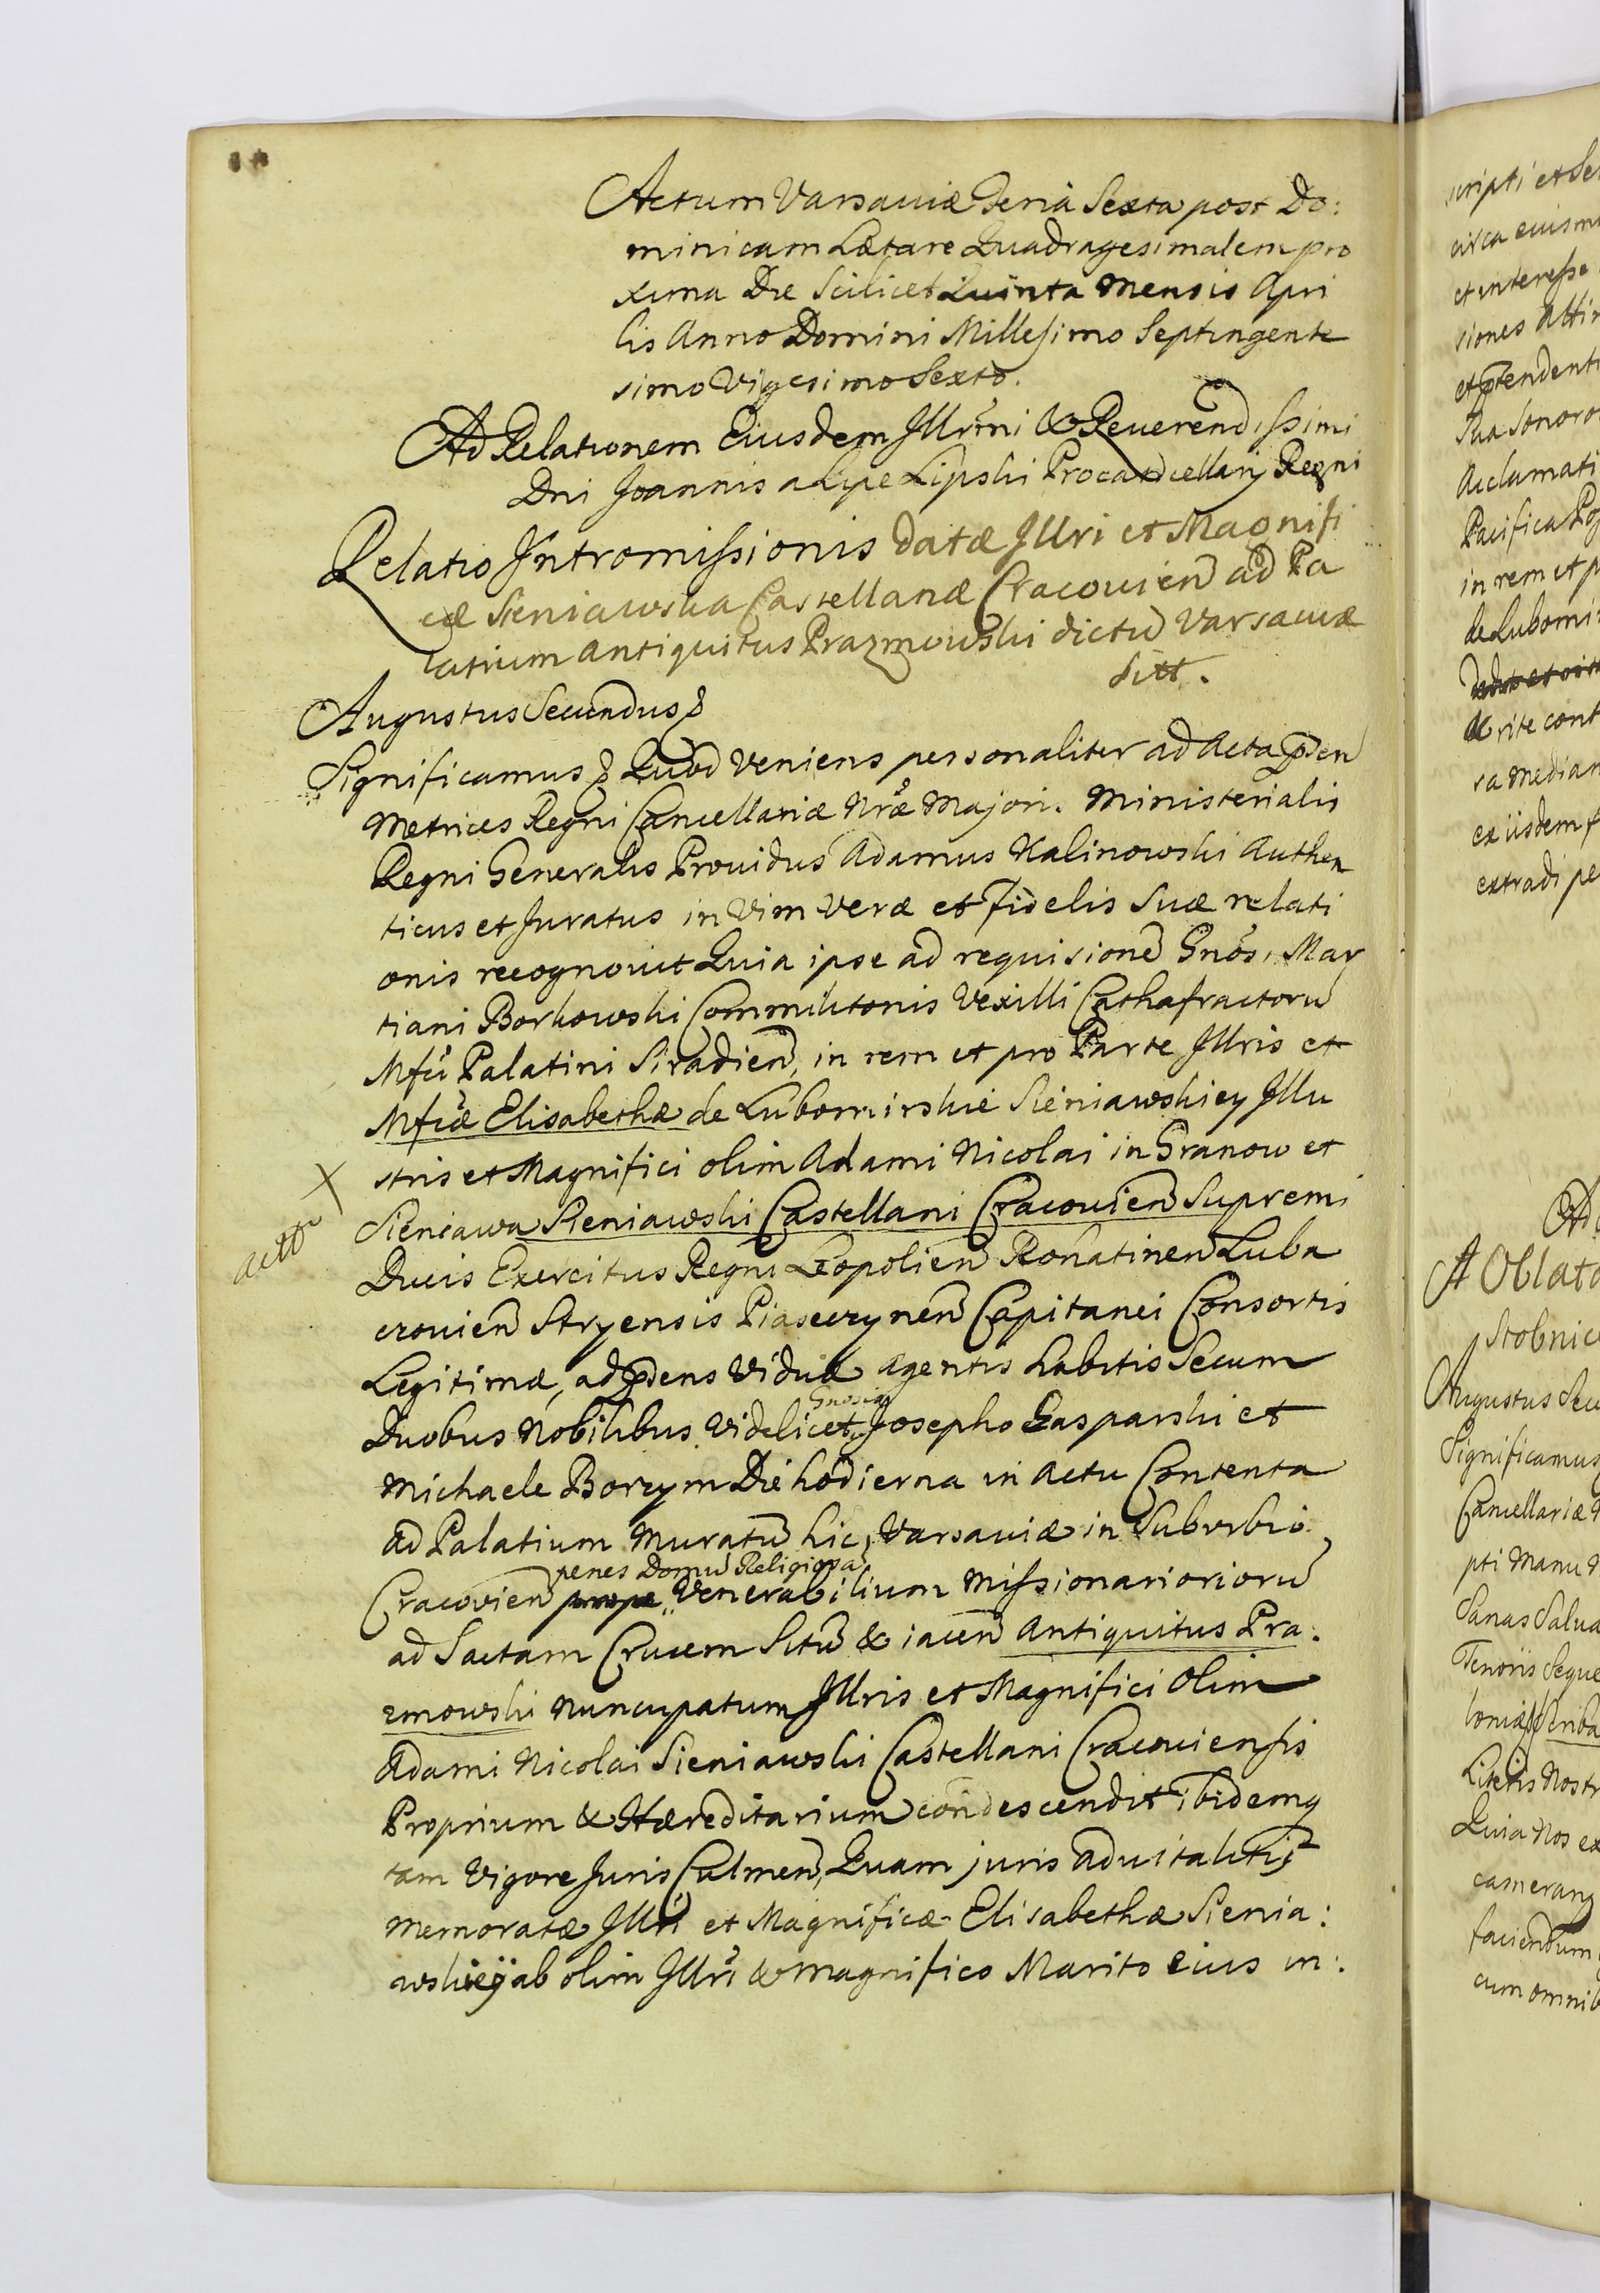 Actum Varsaviæ Feria Sexta post Do:
minicam Lætare Quadragesimalem pro
xima Die Scilicet Quinta Mensis Apri
lis Anno Domini Millesimo Septingente
simo Vigesimo Sexto.
Ad Relationem Eiusdem Illrmi & Reverendissimi
Dni Joannis a Lipe Lipski Procancellarij Regni
Relatio Intromissionis datæ Illri et Magnifi
cæ Sieniawska Castellanæ Cracovien ad Pa
latium antiquitus Prazmowski dictu Varsaviæ
sitt.
Augustus Secundus &
Significamus & Quod veniens personaliter ad Acta pden
Metrices Regni Cancellariæ Nræ Majori. Ministerialis
Regni Generalis Providus Adamus Kalinowski Authen
ticus et Juratus in Vim Veræ et Fidelis Suæ relati
onis recognovit Quia ipse ad requisitione Gnosi Mar
tiani Borkowski Commilitonis Vexilli Cathafractoru
Mfci Palatini Siradien, in rem et pro Parte Illris et
Mfcæ Elisabethæ de Lubomirskie Sieniawskiey Illu
stris et Magnifici olim Adami Nicolai in Granow et
Sieniawa Sieniawski Castellani Cracovien Supremi
actt X
Ducis Exercitus Regni Leopolien Rohatinen Luba
czovien Stryensis Piaseczynen Capitanei Consortis
Legitimæ, ad pdens Viduæ agentis habitis Secum
Duobus Nobilibus Videlicet Gnosis Josepho Gasparski et
Michaele Borzym Die hodierna in Actu Contenta
ad Palatium Muratu hic Varsaviæ in Suburbio
Cracovien prope penes Domu Religiosa Venerabilium Missionariorioru
ad Sactam Crucem Situ & iacen Antiquitus Pra:
zmowski nuncupatum Illris et Magnifici Olim
Adami Nicolai Sieniawski Castellani Cracoviensis
Proprium & Hæreditarium condescendit ibidemq
tam Vigore Juris Culmen, Quam juris advitalitis
memoratæ Illri et Magnificæ Elisabethæ Sienia:
wskiey ab olim Illri & Magnifico Marito Eius in:
scripti et Se
circa eiusm
et interesse
siones
et ptendent
Sua Sonoro
Acclamati
Pacifica Po
in rem et p
de Lubomi
& rite cont
sa median
ex iisdem
extradi pe
Ad
Oblata
Stobnic
Augustus Secu
Significamus
Cancellariæ
pti Manu
Sanas Salva
Tenoris Seque
Literis Nostr
Quia Nos ex
camerang
faciendum
cum omnib